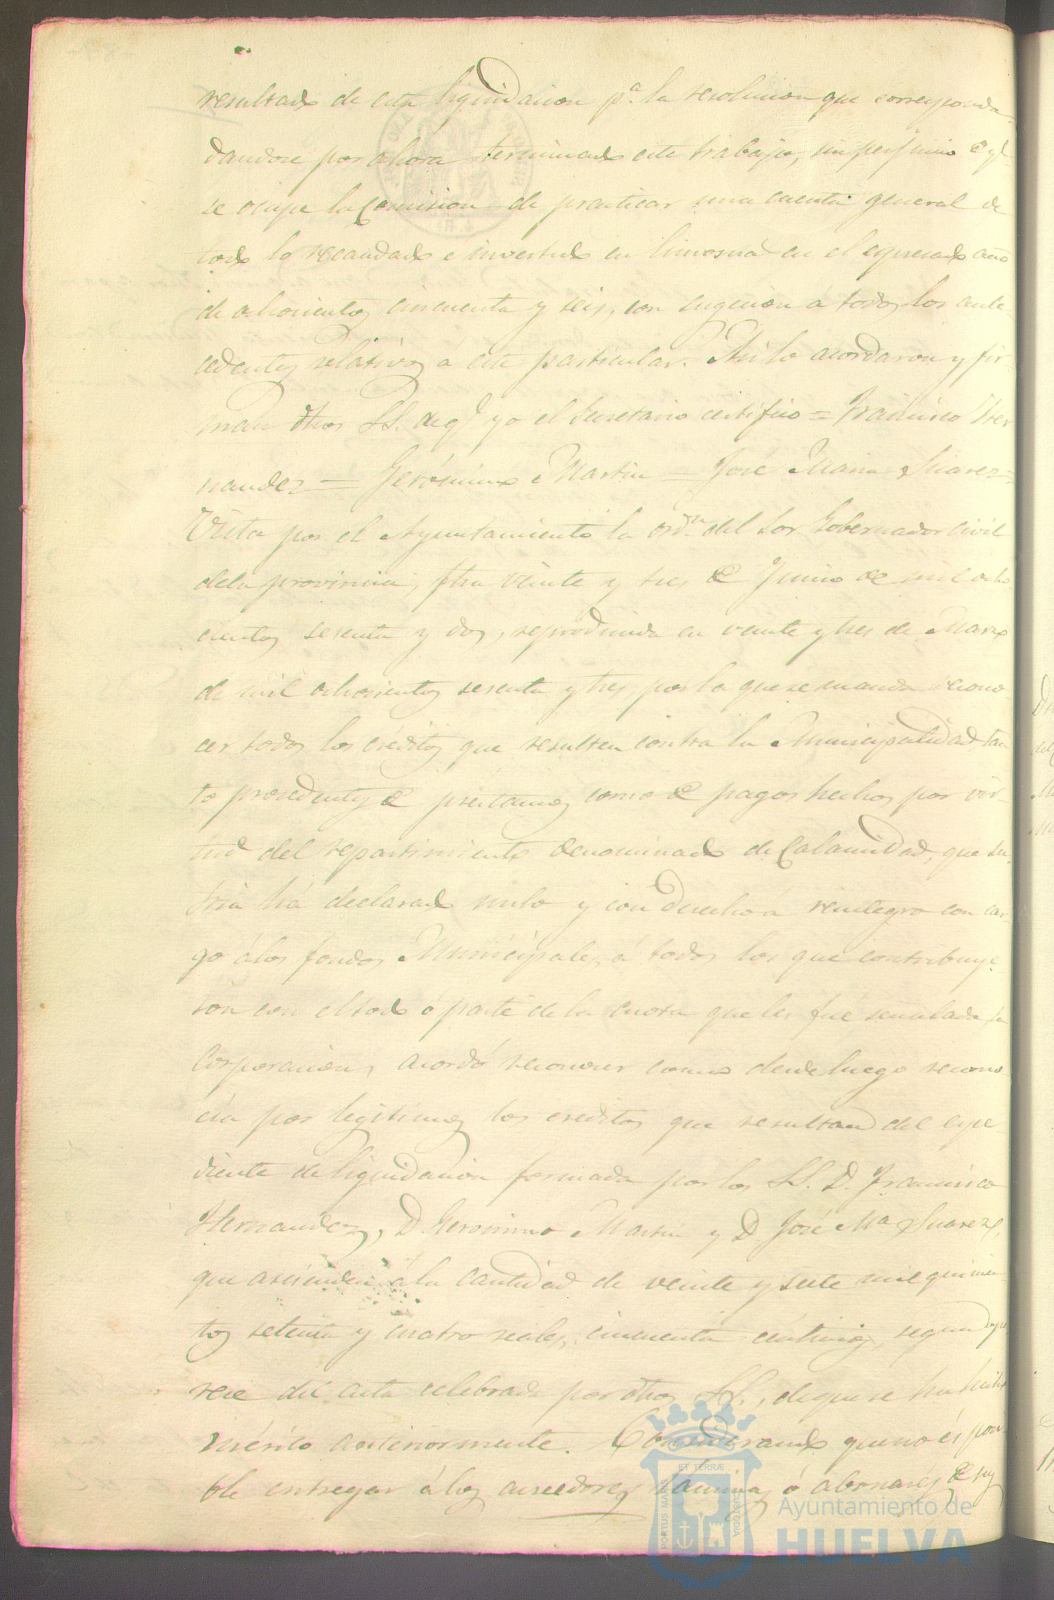 resultado de esta liquidacion pª. la resolucion que corresponda,
dandose por ahora terminado este trabajo, sin perjuicio de qe.
se ocupe la Comision de practicar una cuenta general de
todo lo recaudado e invertido en limosnas en el espresado año
de ochocientos cincuenta y seis, con sugecion á todos los ante-
cedentes relativos á este particular. Asi lo acordaron y fir-
man dhos SS. de qe. yo el Secretario certifico = Francisco Her-
nandez = Gerónimo Martin = José Maria Suarez =
Vista por el Ayuntamiento la ordn. del Sor. Gobernador Civil
dela provincia, fha veinte y tres de Junio de mil ocho
cientos sesenta y dos, reproducida en veinte y tres de Marzo
de mil ochocientos sesenta y tres, por la que se manda recono
cer todos los créditos que resulten contra la Municipalidad tan
to procedentes de prestamos como de pagos hechos por vir-
tud del repartimiento denominado de Calamidad, que
há declarado nulo y con derecho á reintegro con car-
go álos fondos Municipales, á todos los que contribuye-
ron con el todo ó parte de la cuota que les fue señalada, la
Corporacion, acordó reconocer como desde luego recono-
cia por legitimos los creditos que resultan del espe-
diente de liquidacion formada por los SS. D. Francisco
Hernandez, D. Geronimo Martin y D. José Mª. Suarez,
que ascienden á la cantidad de veinte y siete mil quinien
tos setenta y cuatro reales, cincuenta centimos, segun apa
rece del acta celebrada por dhos SS., de que se ha hecho
mérito anteriormente. Considerando que no és posi
ble entregar á los acreedores laminas ó abonarés de sus
ET TERRAE
PORTUS MARIS
CUSTODIA
Ayuntamiento de
HUELVA